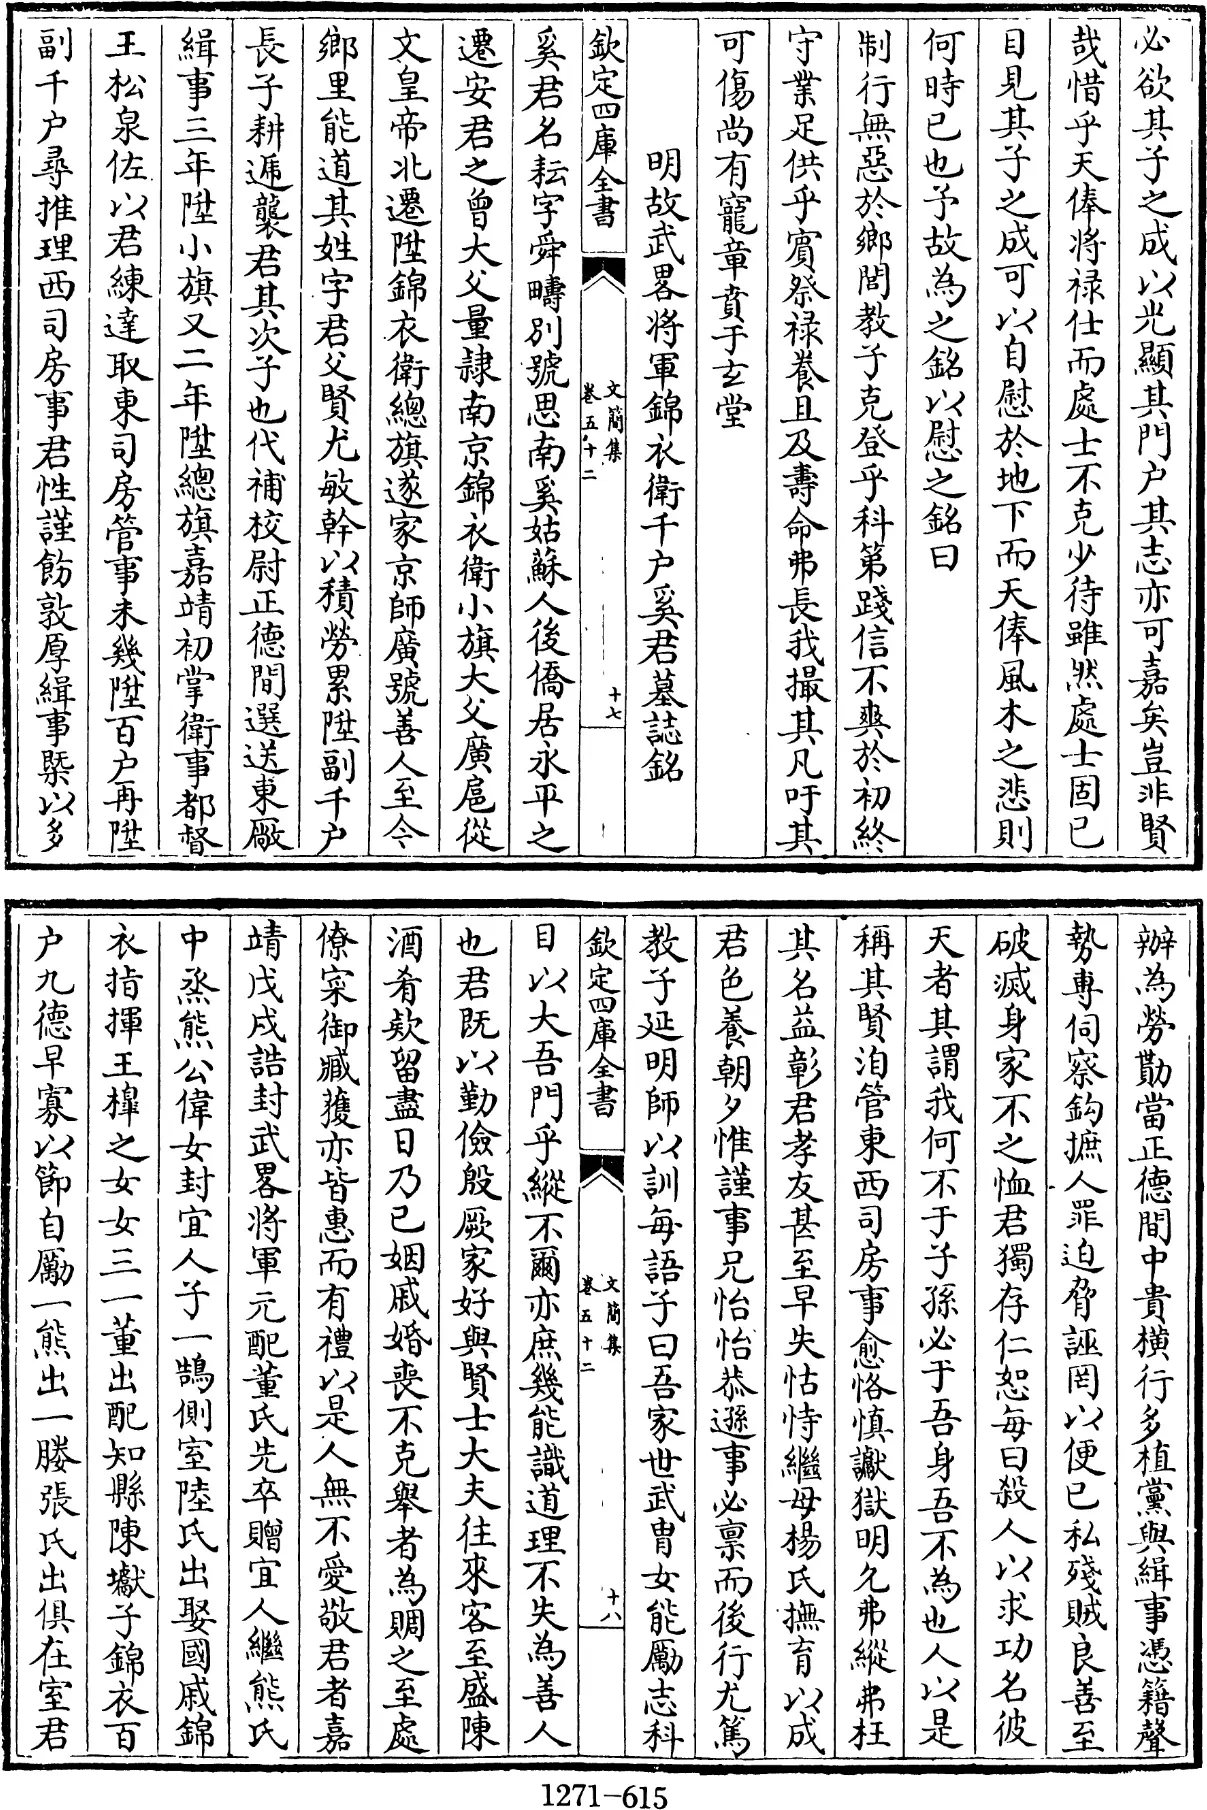 必欲其子之成以光顯其門户其志亦可嘉矣豈非賢
哉惜乎天俾將禄仕而處士不克少待雖然處士固已
目見其子之成可以自慰於地下而天俾風木之悲則
何時已也予故為之銘以慰之銘曰
制行無惡於鄉閭教子克登乎科第踐信不爽於初終
守業足供乎賓祭禄養且及壽命弗長我撮其凡吁其
可傷尚有寵章賁于玄堂
明故武畧將軍錦衣衛千户奚君墓誌銘
欽定四庫全書
文簡集
卷五十二
十七
奚君名耘字舜疇别號思南奚姑蘇人後僑居永平之
遷安君之曾大父量隷南京錦衣衛小旗大父廣扈從
文皇帝北遷陞錦衣衛總旗遂家京師廣號善人至今
鄉里能道其姓字君父賢尤敏幹以積勞累陞副千户
長子耕逓襲君其次子也代補校尉正德間選送東厰
緝事三年陞小旗又二年陞總旗嘉靖初掌衛事都督
王松泉佐以君練達取東司房管事未幾陞百户再陞
副千户尋推理西司房事君性謹飭敦厚緝事槩以多
辦為勞勩當正德間中貴横行多植黨與緝事憑籍聲
勢專伺察鈎摭人罪迫脅誣罔以便已私殘賊良善至
破滅身家不之恤君獨存仁恕每曰殺人以求功名彼
天者其謂我何不于子孫必于吾身吾不為也人以是
稱其賢洎管東西司房事愈恪慎讞獄明允弗縱弗枉
其名益彰君孝友甚至早失怙恃繼母楊氏撫育以成
君色養朝夕惟謹事兄怡怡恭遜事必禀而後行尤篤
教子延明師以訓每語子曰吾家世武胄女能勵志科
欽定四庫全書
文簡集
卷五十二
十八
目以大吾門乎縱不爾亦庶幾能識道理不失為善人
也君既以勤儉殷厥家好與賢士大夫往來客至盛陳
酒肴欵留盡日乃已姻戚婚喪不克舉者為賙之至處
僚寀御臧獲亦皆惠而有禮以是人無不愛敬君者嘉
靖戊戌誥封武畧將軍元配董氏先卒贈宜人繼熊氏
中烝熊公偉女封宜人子一鵠側室陸氏出娶國戚錦
衣指揮王橰之女女三一董出配知縣陳巘子錦衣百
户九德早寡以節自勵一熊出一媵張氏出俱在室君
1271-615